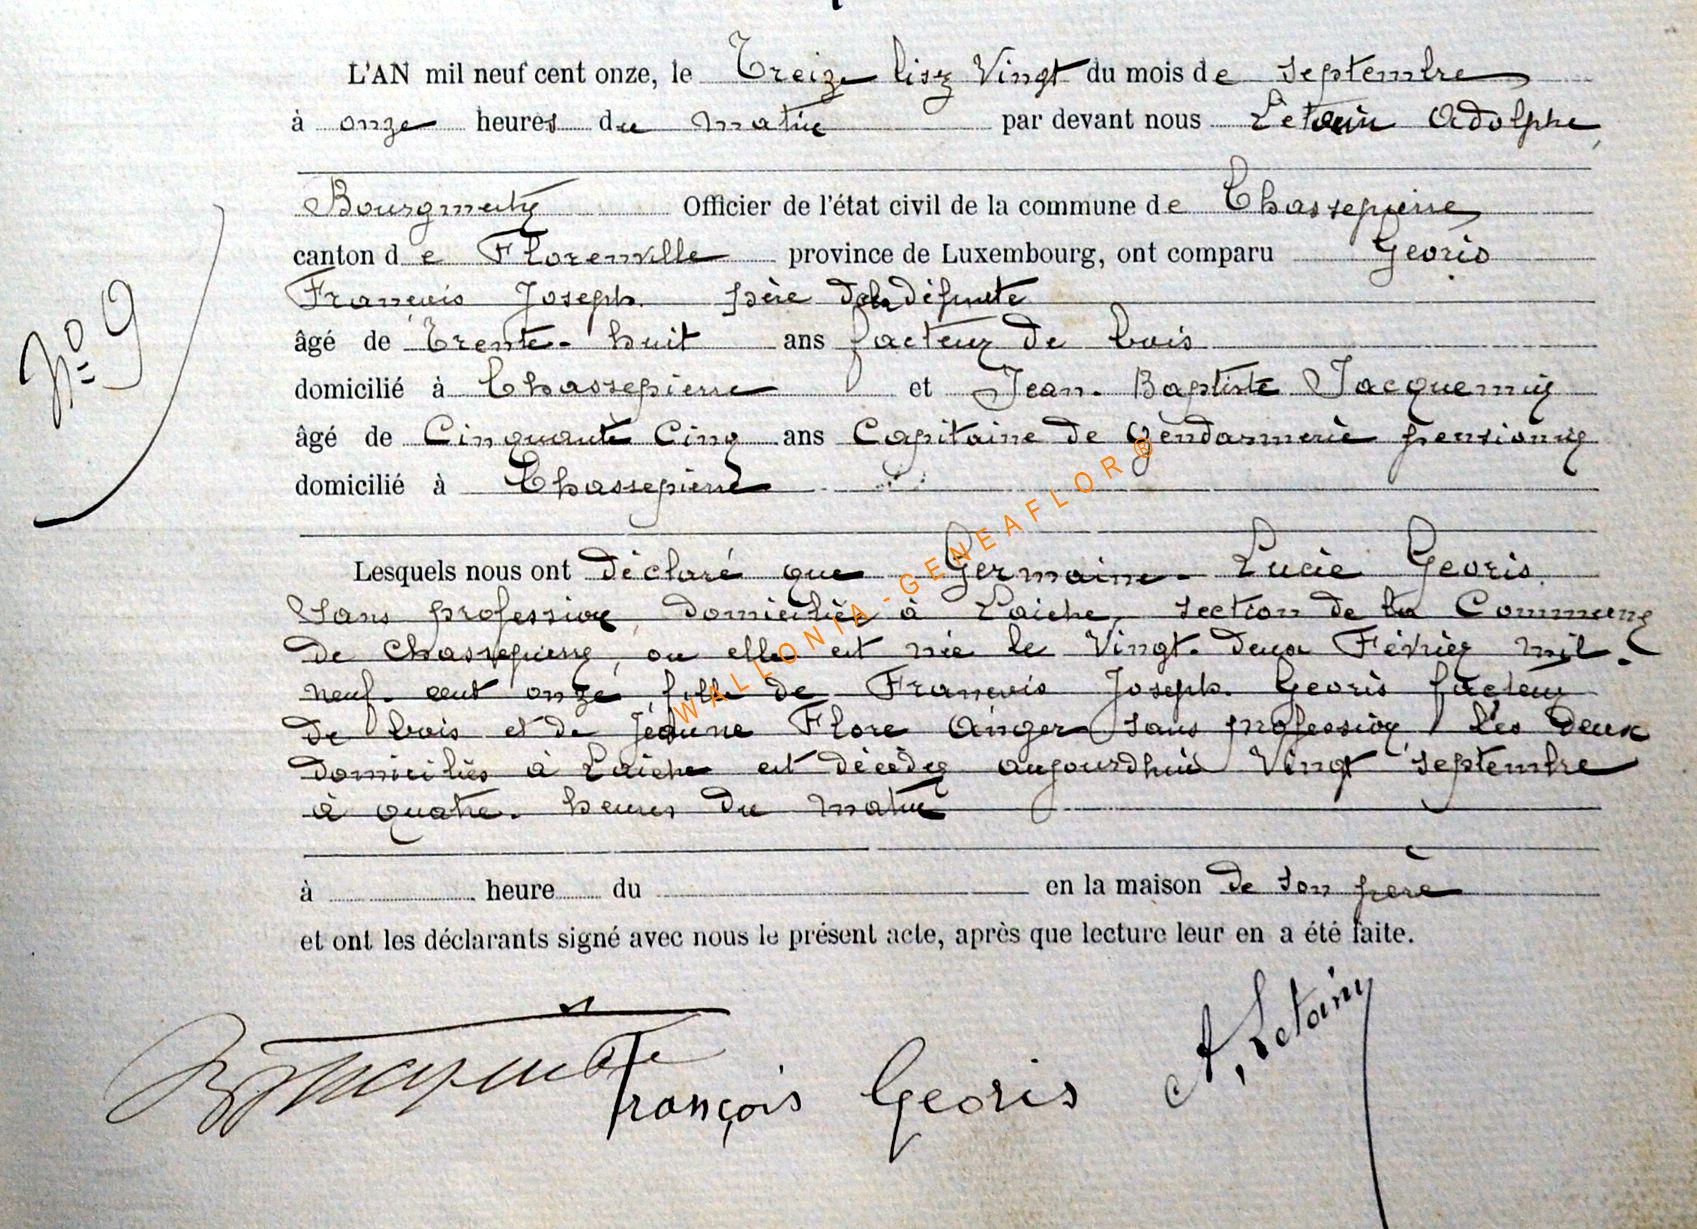 L'AN mil neuf cent onze, le Treize lisez Vingt du mois de septembre
à onze heures du matin par devant nous Letoin Adolphe,
Bourgmestre Officier de l'état civil de la commune de Chassepierre
canton de Florenville province de Luxembourg, ont comparu Georis
François Joseph. père de la défunte
âgé de Trente-huit ans facteur de bois
domicilié à Chassepierre et Jean-Baptiste Jacquemin
âgé de Cinquante Cinq ans Capitaine de Gendarmerie pensionné
domicilié à Chassepierre
Lesquels nous ont déclaré que Germaine-Lucie Georis.
sans profession, domiciliée à Laiche, section de la Commune
de Chassepierre, ou elle est née le Vingt-deux Février mil
neuf-cent onze, fille de François Joseph. Georis facteur
de bois et de Jeanne Flore Anger sans profession, les deux
domiciliés à Laiche est décédée aujourdhui Vingt septembre
à quatre heures du matin
à heure du en la maison de son père
et ont les déclarants signé avec nous le présent acte, après que lecture leur en a été faite.
François Georis A. Letoin
Nº 9
WALLONIA-GENEAFLOR®